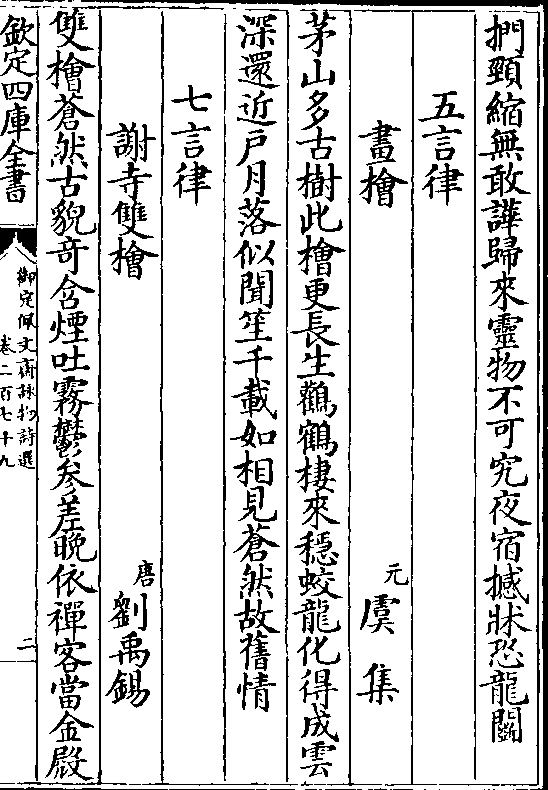 捫頸縮無敢譁歸來靈物不可究夜宿撼牀恐龍鬬
五言律
畫檜
元虞集
茅山多古樹此檜更長生鸛鶴棲來穩蛟龍化得成雲
深還近戶月落似聞笙千載如相見蒼然故舊情
七言律
謝寺雙檜
唐劉禹錫
雙檜蒼然古貌奇含煙吐霧鬱參差晚依禪客當金殿
欽定四庫全書
御定佩文齋詠物詩選
卷二百七十九
二